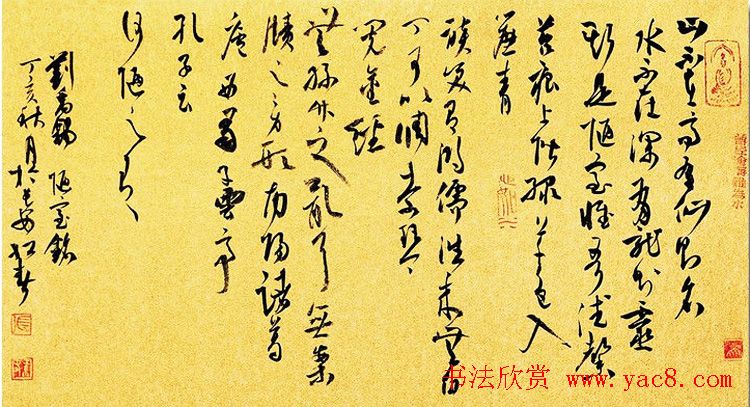 山不在高有仙則名
水不在深有龍則靈
斯是陋室惟吾德馨
苔痕上階綠草色入
簾青
談笑有鴻儒往來無白
丁可以調素琴
閱金經
無絲竹之亂耳無案
牘之勞形南陽諸葛
廬西蜀子雲亭
孔子云
何陋之有
劉禹錫 陋室銘
丁亥秋月於長安
书法欣赏 www.yac8.com